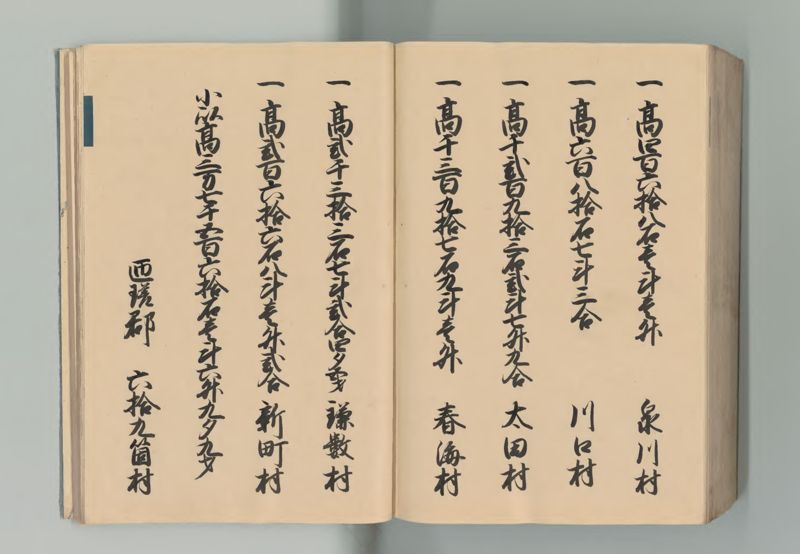 一 高四百六拾八石壱斗壱升 泉川村
一 高六百八拾石七斗三合 川口村
一 高千弐百九拾三石弐斗七升九合 太田村
一 高千三百九拾七石九斗壱升 春海村
一 高弐千三拾三石七斗弐合四夕 鎌数村
一 高弐百六拾六石八斗壱升弐合 新町村
小以高三万七千五百六拾石壱斗六升九夕九才
匝瑳郡 六拾九箇村